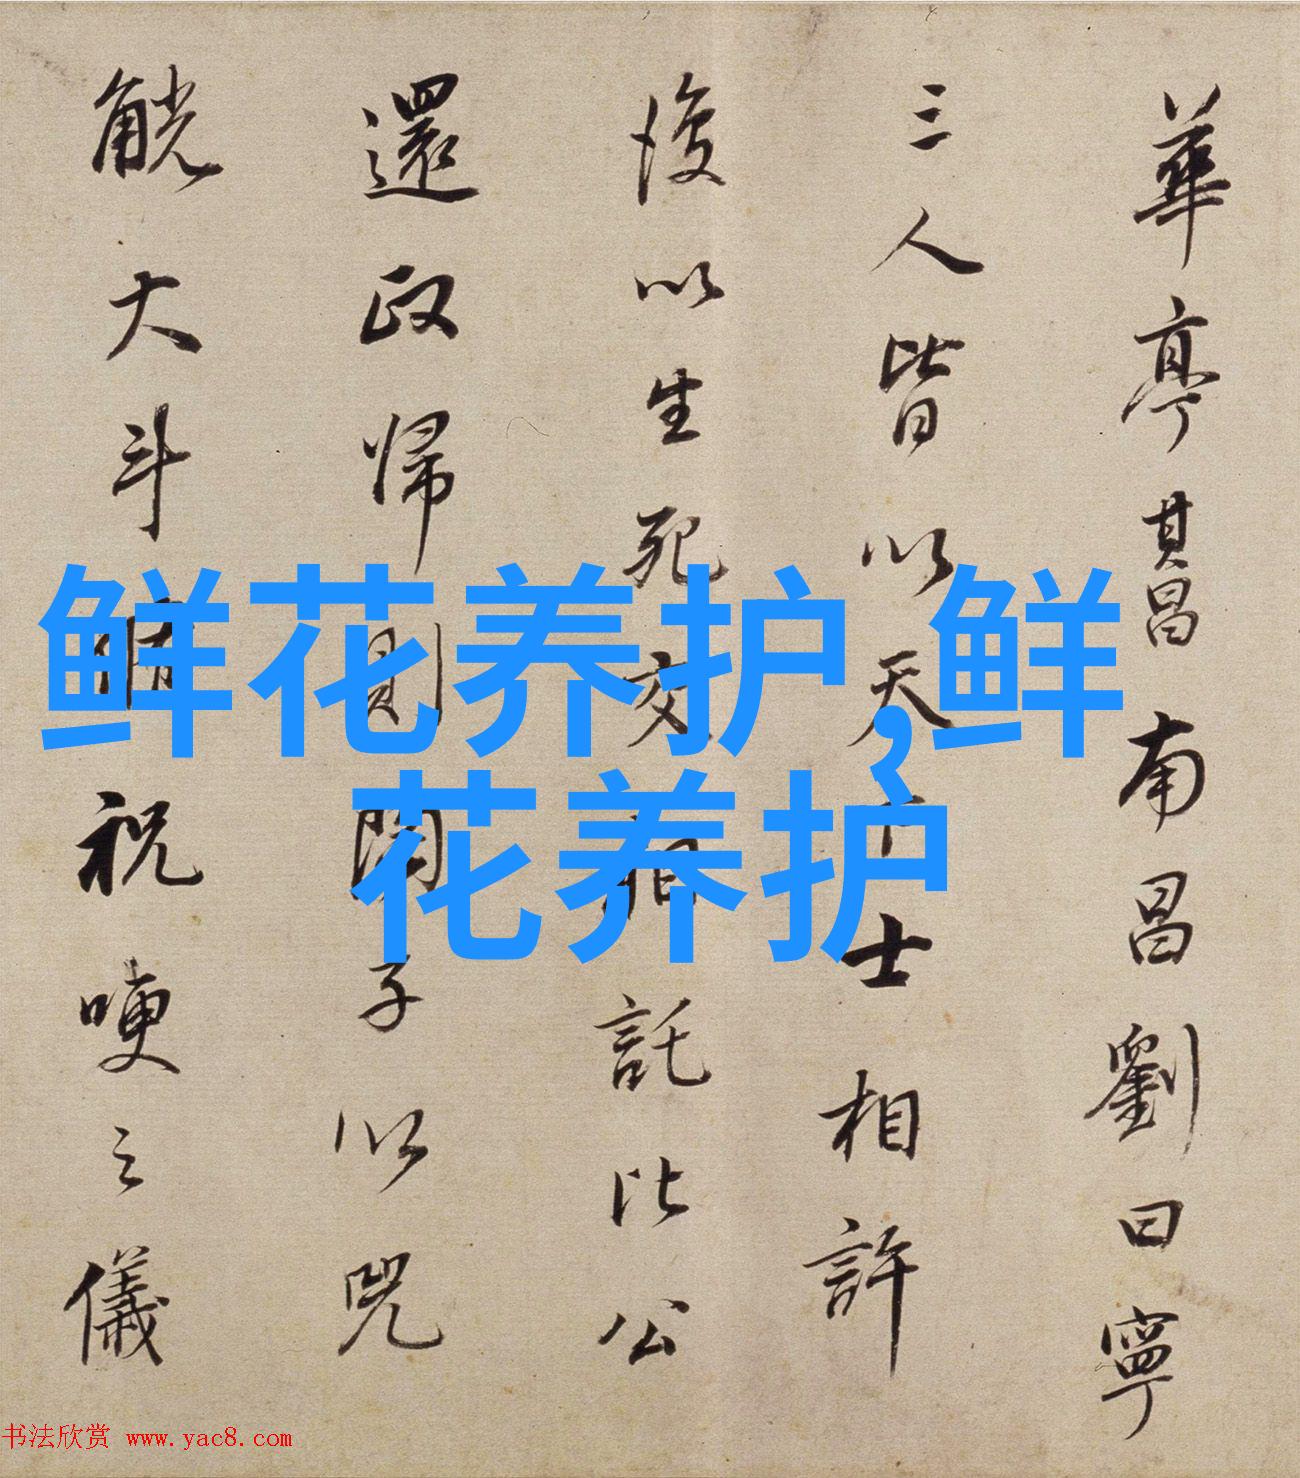 華亭其昌南昌劉曰寧
三人皆以天下士相許
後以生死交相託比公
還政歸則開子以兕
觥大斗侑祝哽之儀
鲜花养护,鲜
花养护
书法欣赏 www.yac8.com